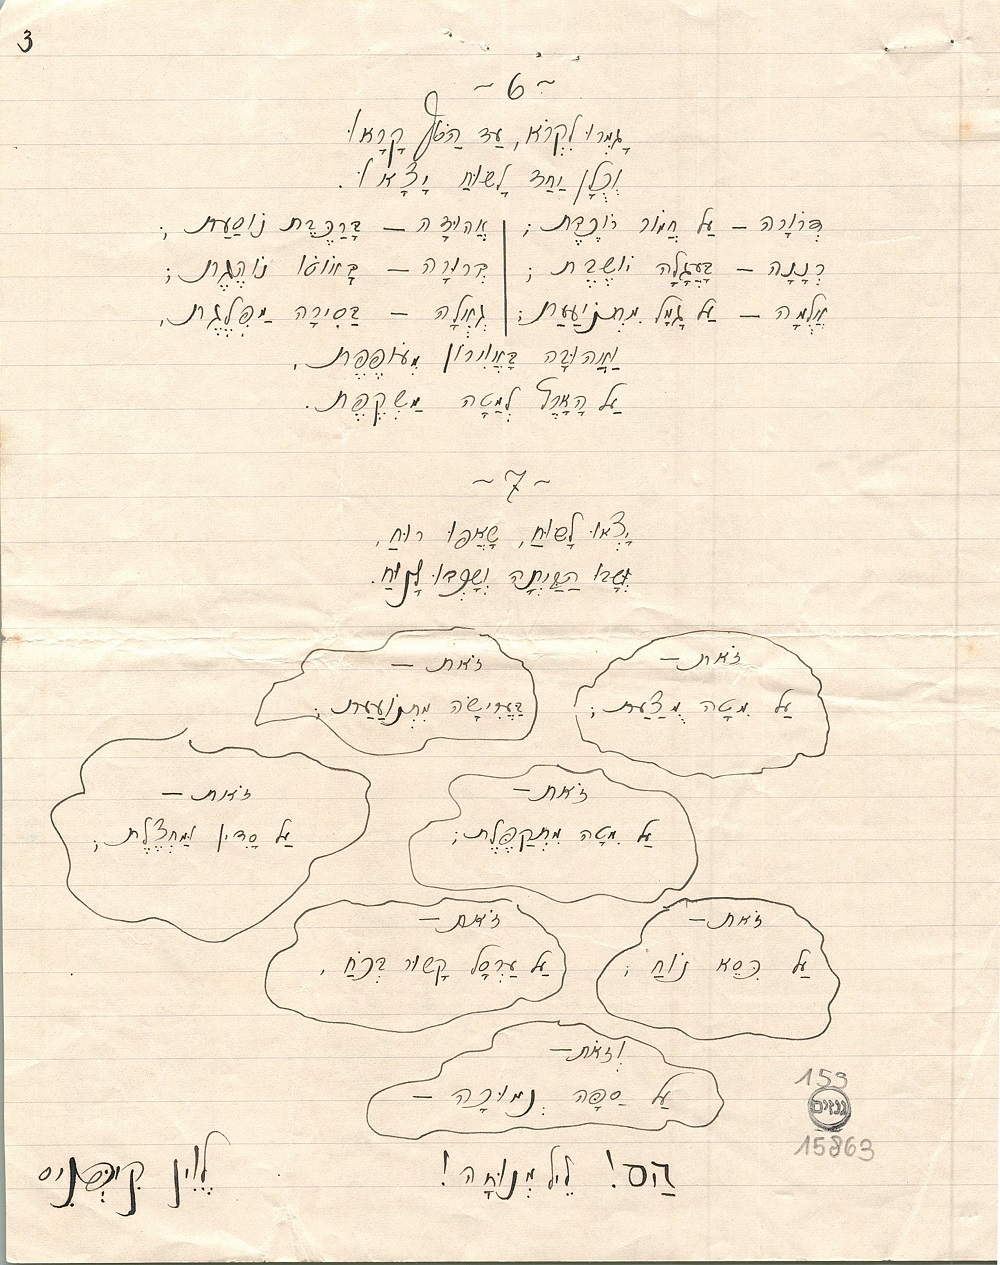 3
~ 6 ~
גָּמְרוּ לִקְרֹא, עַד הַסּוֹף קָרָאוּ
וְכֻלָּן יַחַד לָשׂוּחַ יָצָאוּ.
דְּרוֹרָה – עַל חֲמוֹר רוֹכֶבֶת; | אֲהוּדָה – בָּרַכֶּבֶת נוֹסַעַת;
רְנָנָה – בָּעֲגָלָה יוֹשֶׁבֶת; | בְּרוּרָה – בָּאוֹטוֹ נוֹהֶגֶת;
אֻלְמָה – עַל גָּמָל מִתְנוֹעַעַת; | גְּאֻלָּה – בַּסִּירָה מַפְלֶגֶת,
וַאֲהוּבָה בָּאֲוִירוֹן מְעוֹפֶפֶת,
עַל הָאָרֶץ לְמַטָּה מַשְׁקֶפֶת.
~ 7 ~
יָצְאוּ לָשׂוּחַ, שָׁאֲפוּ רוּחַ,
שָׁבוּ הַבַּיְתָה וְשָׁכְבוּ לָנוּחַ.
זֹאת –
עַל מִטָּה מֻצַּעַת;
זֹאת –
בַּעֲרִיסָה מִתְנוֹעַעַת;
זֹאת –
עַל מִטָּה מִתְקַפֶּלֶת;
זֹאת –
עַל סָדִין וּמַחְצֶלֶת;
זֹאת –
עַל כִּסֵּא נוֹחַ;
זֹאת –
עַל עַרְסָל קָשׁוּר בְּכֹחַ,
וְזֹאת –
עַל סַפָּה נְמוּכָה –
הַס! לֵיל מְנוּחָה!
לֶוִין קִיפְּנִיס
153
גנזים
15863